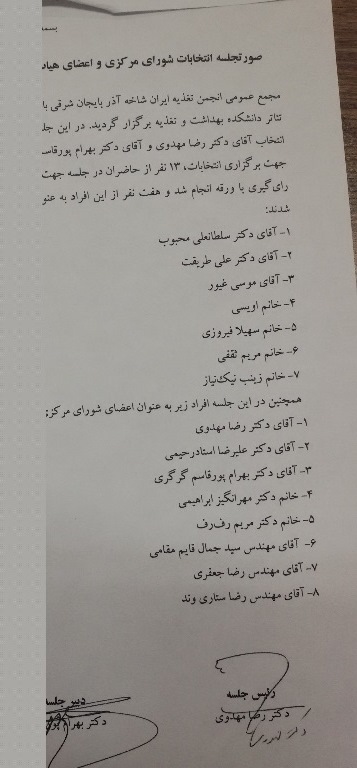 بسمه
صورتجلسه انتخابات شورای مرکزی و اعضای هیات
مجمع عمومی انجمن تغذیه ایران شاخه آذربایجان شرقی با
تئاتر دانشکده بهداشت و تغذیه برگزار گردید. در این
انتخاب آقای دکتر رضا مهدوی و آقای دکتر بهرام پورقاسم
جهت برگزاری انتخابات، ۱۳ نفر از حاضران در جلسه جهت
رای‌گیری با ورقه انجام شد و هفت نفر از این افراد به
شدند:
۱- آقای دکتر سلطانعلی محبوب
۲- آقای دکتر علی طریقت
۳- آقای موسی غیور
۴- خانم اویسی
۵- خانم سهیلا فیروزی
۶- خانم مریم ثقفی
۷- خانم زینب نیک‌نیاز
همچنین در این جلسه افراد زیر به عنوان اعضای شورای مرکزی
۱- آقای دکتر رضا مهدوی
۲- آقای دکتر علیرضا استادرحیمی
۳- آقای دکتر بهرام پورقاسم گرگری
۴- خانم دکتر مهرانگیز ابراهیمی
۵- خانم دکتر مریم رف‌رف
۶- آقای مهندس سید جمال قایم مقامی
۷- آقای مهندس رضا جعفری
۸- آقای مهندس رضا ستاری وند
رئیس جلسه
دکتر رضا مهدوی
دبیر جلسه
دکتر بهرام